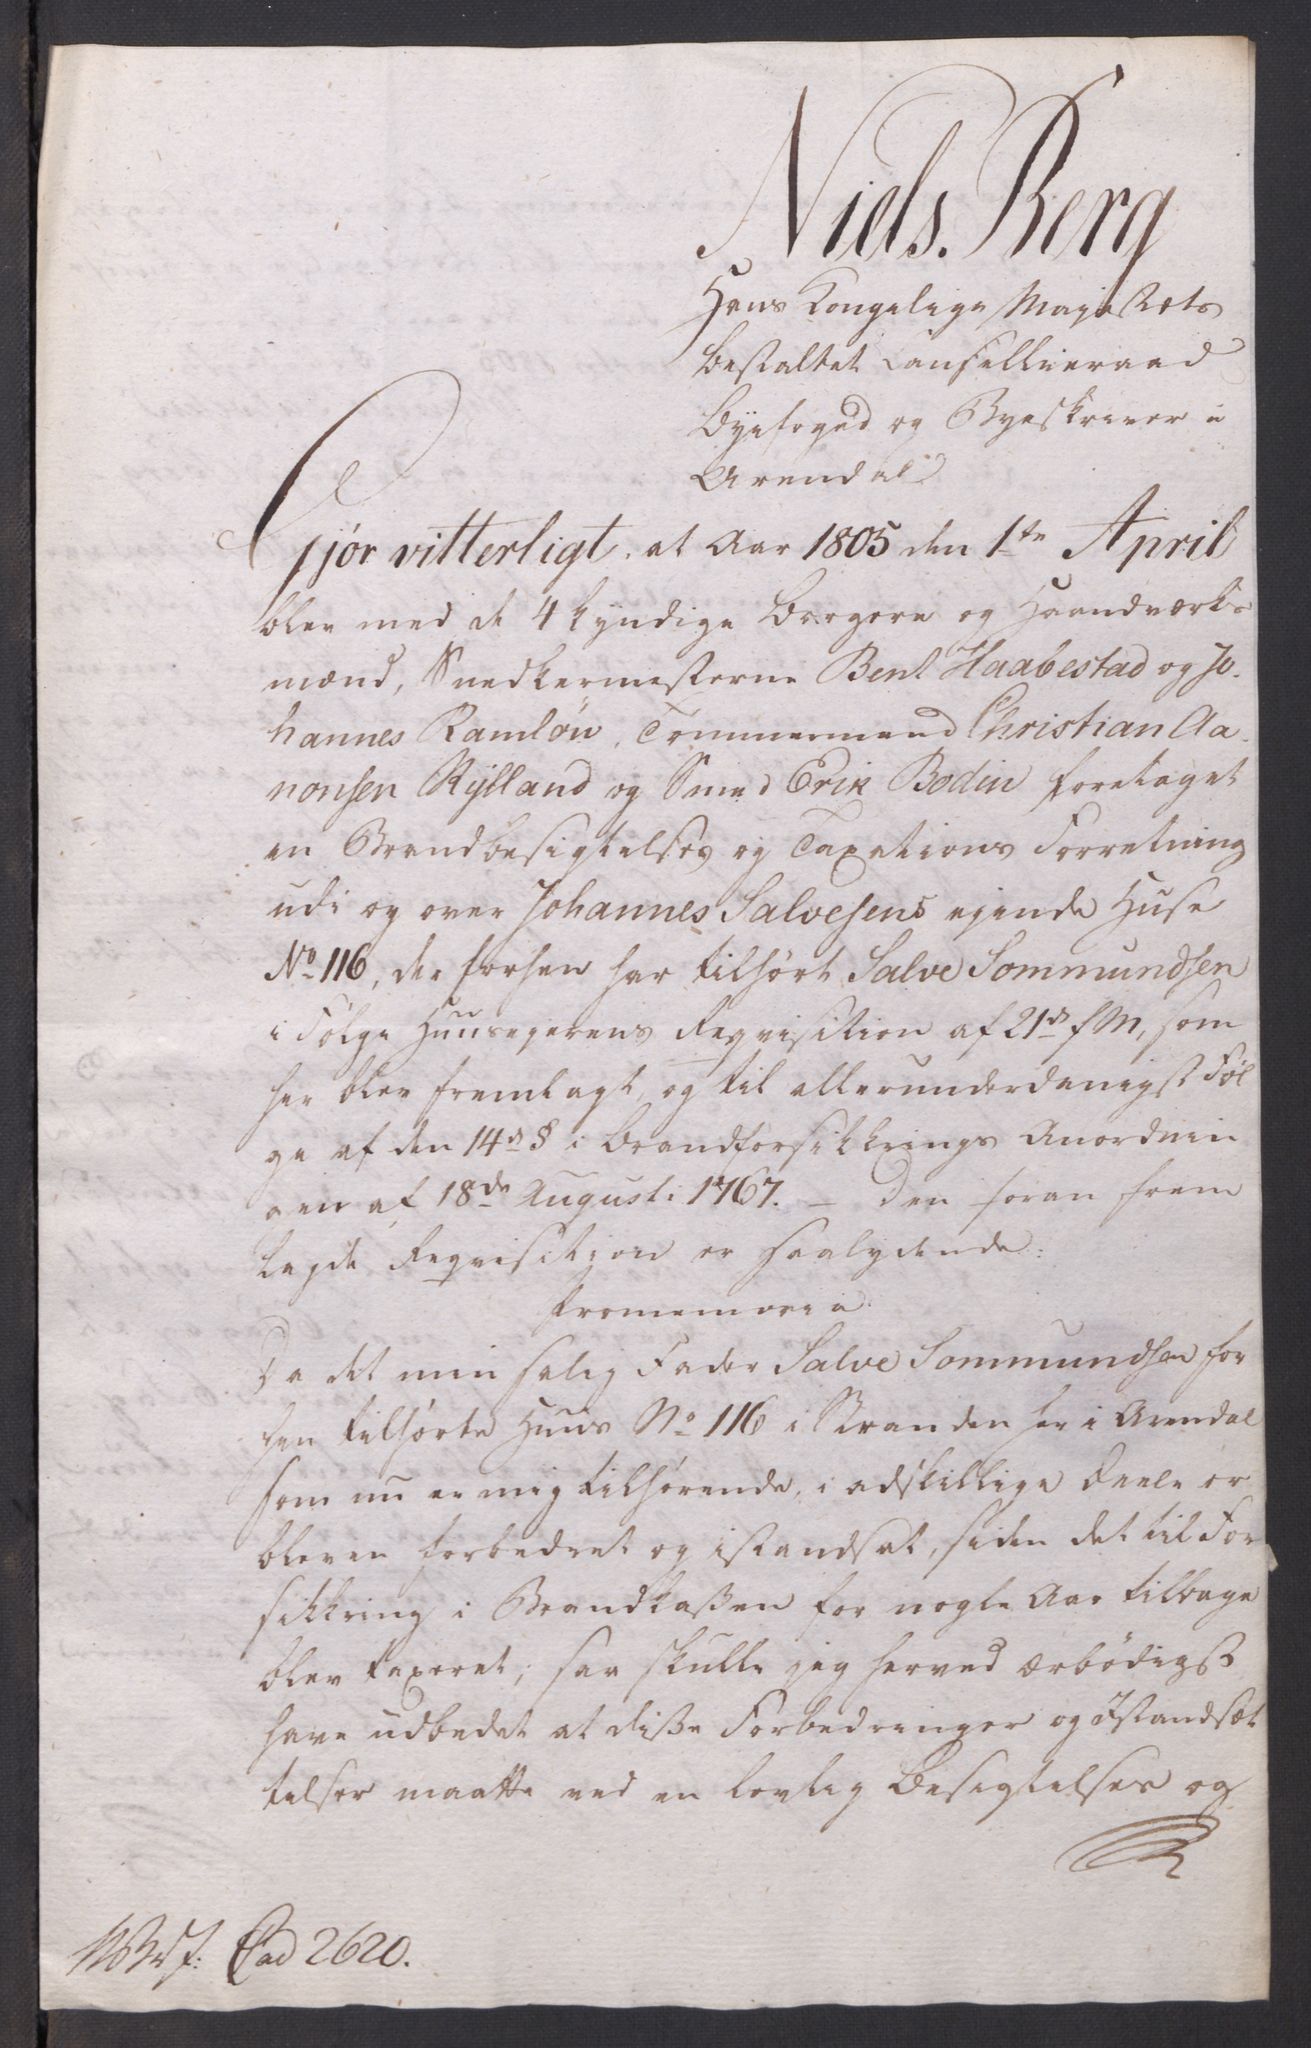 Niels. Berg
Hans Kongelige Majestæts
bestalter Cancellieraad
Byefoged og Byeskriver i
Arendal
Gjör vitterligt, at Aar 1805 den 1te April
blev med de 4 kyndige Borgere og Haandværks
mænd, Snedkermesterne Bent Haabestad og Jo-
hannes Ramlöu, Tömmermand Christian Aa-
nonsen Rylland og Smed Erik Bodin foretaget
en Brandbesigtelses og Taxations Forretning
udi og over Johannes Salvesens ejende Huse
No 116, der forhen har tilhört Salve Sommundsen
i Fölge Huuseyerens Reqvisition af 21d f M, som
her blev fremlagt, og til allerunderdanigst Föl
ge af den 14d § i Brandforsikkrings Anordnin
gen af 18de Augusti 1767. – Den foran frem
lagde Reqvisitjon er saalydende:
Promemoria.
Da det min salig Fader Salve Sommundsen for
hen tilhörte Huus No 116 i Stranden her i Arendal
som nu er mig tilhörende, i adskillige Deele er
bleven forbedret og istandsat, siden det til For
sikkring i Brandkaßen for nogle Aar tilbage
blev taxeret; saa skulle jeg herved ærbödigst
have udbedet at diße Forbedringer og Istandsæt
telser maatte ved en lovlig Besigtelses og
Pad 2620.